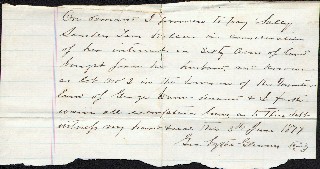 On demand I promise to pay Sally
Sanders Ten Dollars in consideration
of her interest in Sixty Acres of land
bought from her husband and known
as lot No 2 in the division of the
land of George Dunn deceased & I
waive all exemption laws as to this debt
witness my hand & seal this 3rd June 1877
Geo